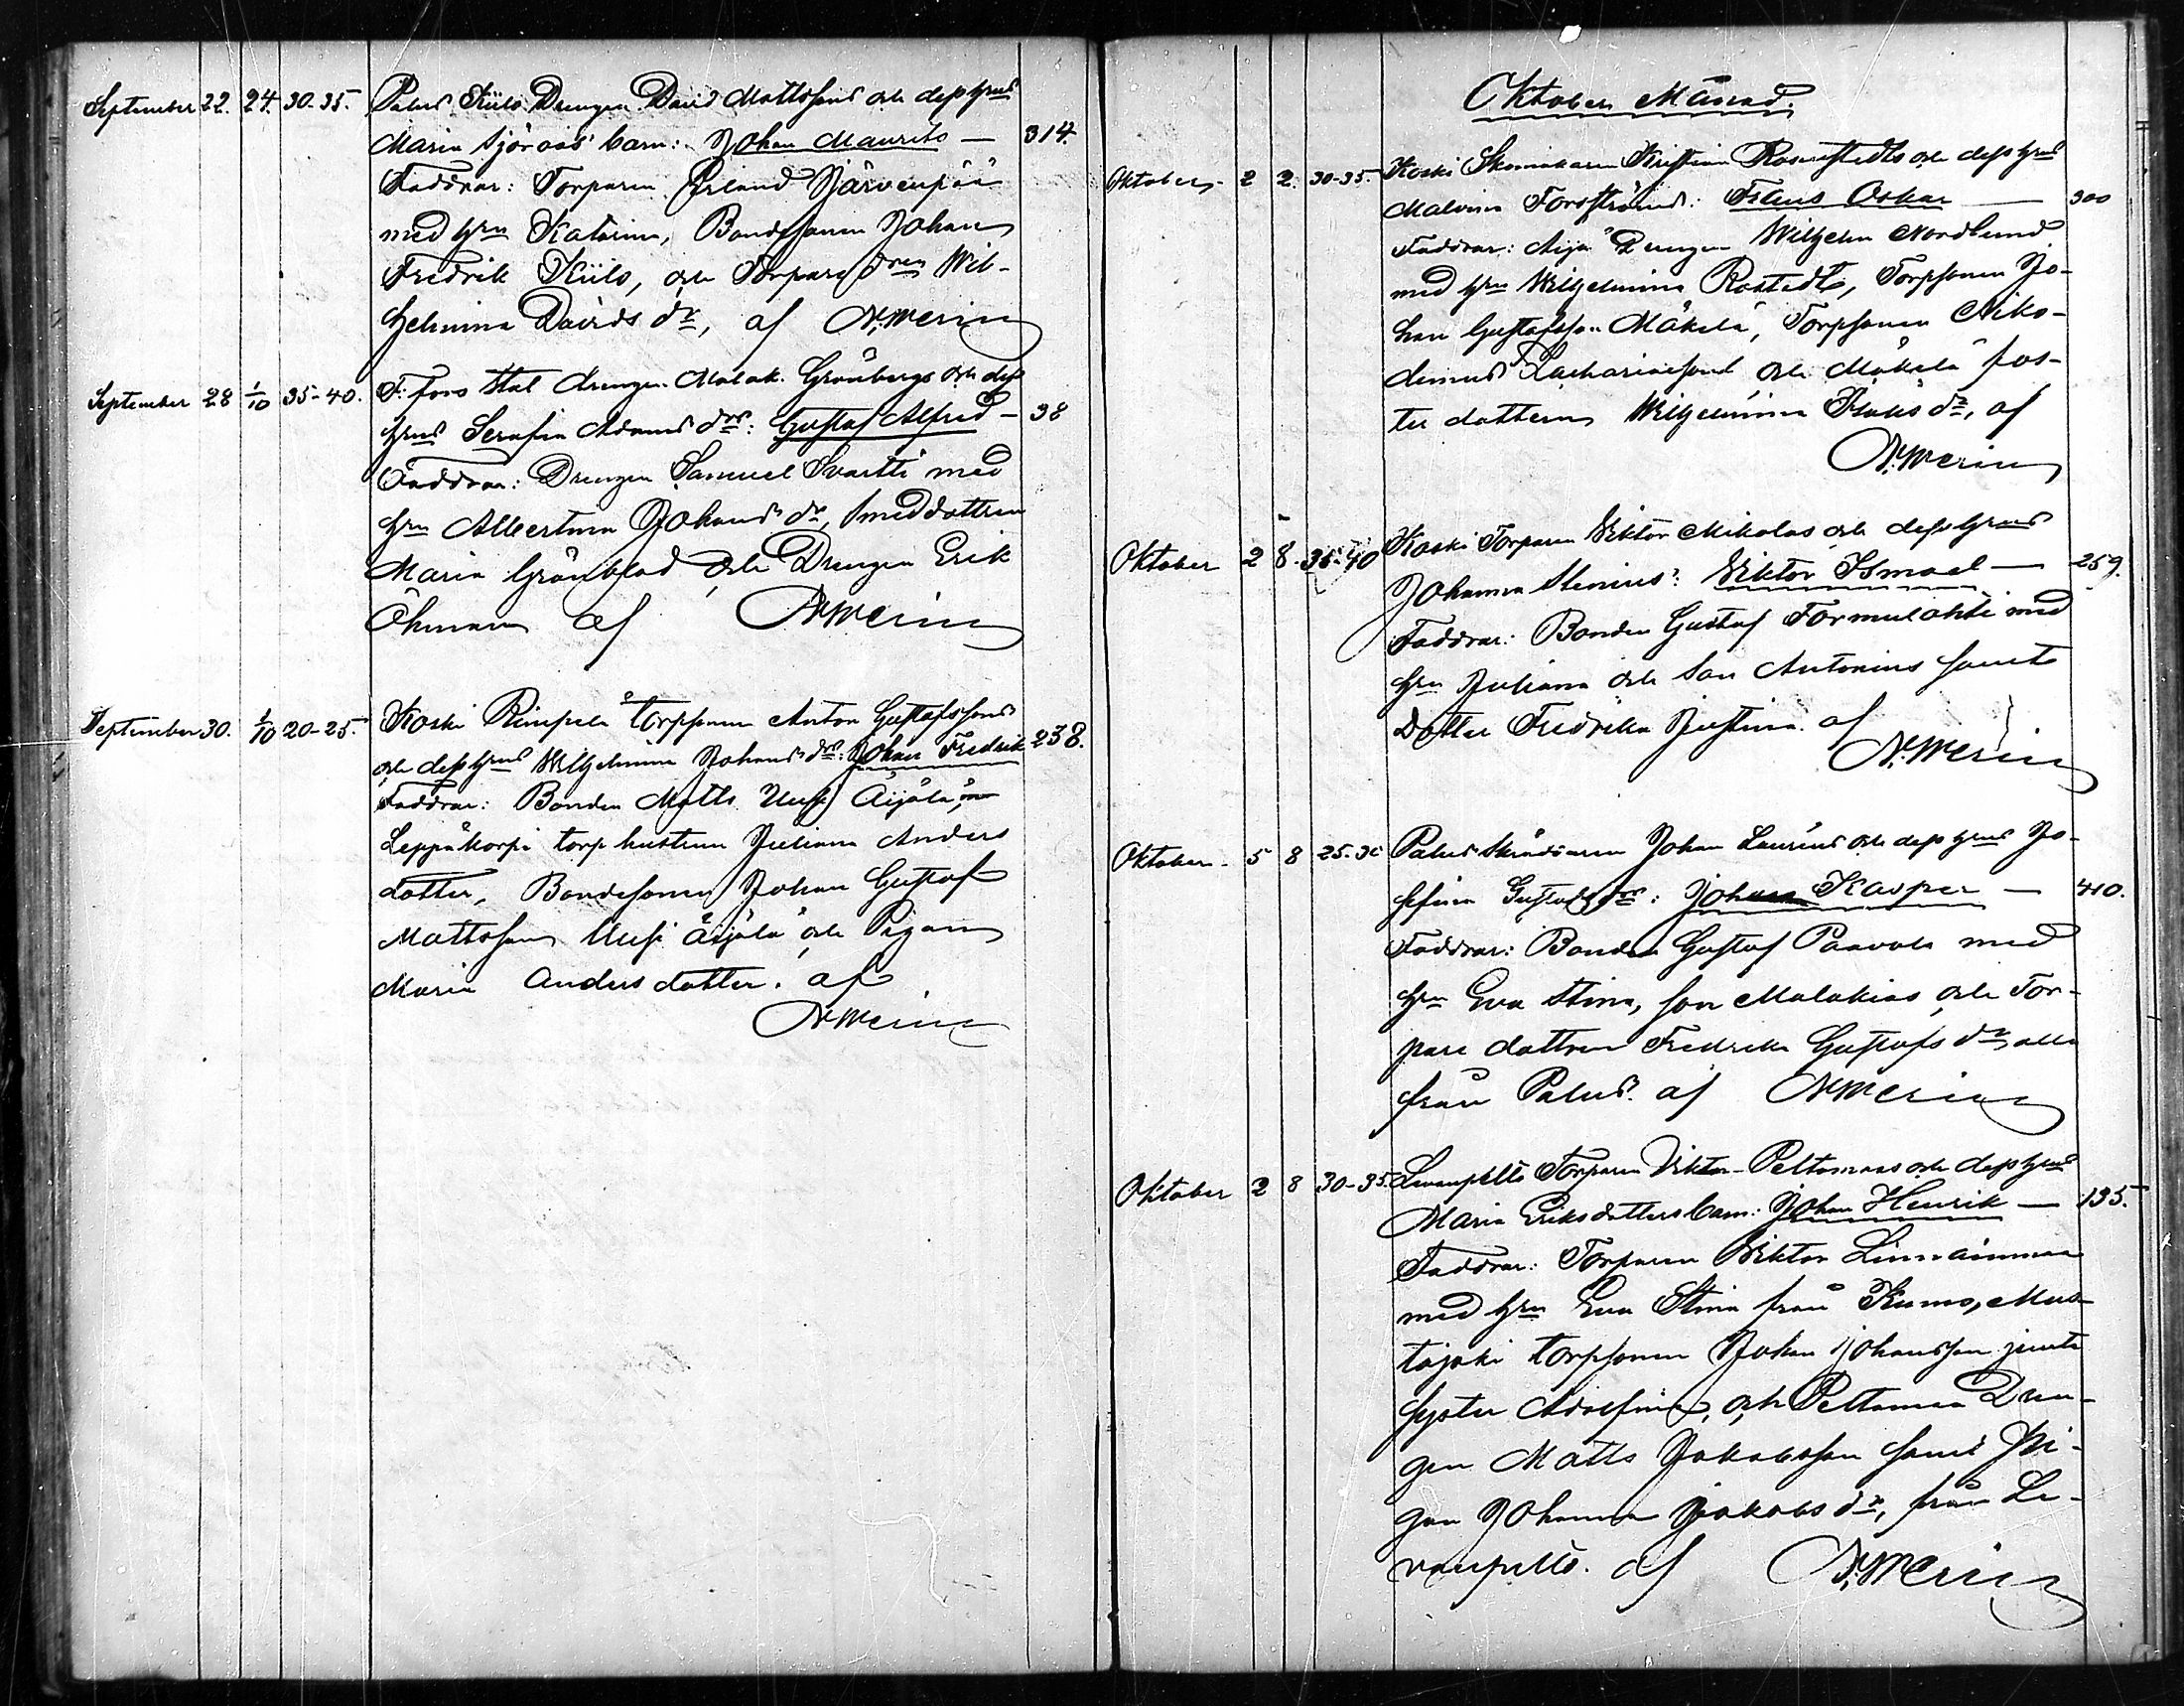 September 22. 24. 30-35. Palus Kiilo Drengen David Mattssons och dess hrus
Maria Sjöroos' barn: Johan Maurits — 314.
Faddrar: Torparen Erland Järvenpää
med hru Katarina, Bondesonen Johan
Fredrik Kiilo, och Torpare dren Wil-
helmina Davids dr, af N. Merin
September 28 1/10 35-40. F. fors Stat drengen Malak. Grönbergs och dess
hrus Serafia Adams drs: Gustaf Alfred — 38
Faddrar: Drengen Samuel Svartti med
hru Albertina Johans dr, Smeddottren
Maria Grönblad och Drengen Erik
Öhman af N Merin
September 30. 1/10 20-25. Koski Rimpelä torpsonen Anton Gustafssons
och dess hrus Wilhelmina Johans drs: Johan Fredrik 238.
Faddrar: Bonden Matts Uusi Äijälä,
Leppäkorpi torp hustrun Juliana Anders
dotter, Bondesonen Johan Gustaf
Mattsson Uusi Äijälä och Pigan
Maria Andersdotter. af
N Merin
Oktober Månad.
Oktober 2 2. 30-35. Koski Skomakaren Kristian Rosenstedts och dess hrus
Malvina Forsströms: Frans Oskar — 300
Faddrar: Äijä Drengen Wilhelm Nordlund
med hru Wilhelmina Rostedt, Torpsonen Jo-
han Gustafsson Mäkelä, Torpsonen Niko-
demus Zachariasson och Mäkelä fos-
ter dottern Wilhelmina Isaks dr, af
N. Merin
Oktober 2 8. 35-40 Koski Torparen Viktor Mikolas och dess hrus
Johanna Stenius': Viktor Ismael — 259.
Faddrar: Bonden Gustaf Formulahti med
hru Juliana och Son Antonius samt
Dotter Fredrika Justina. af
N. Merin
Oktober 5 8 25-30 Palus Skräddaren Johan Lauréns och dess hrus Jo-
sefina Gustafs drs: Johan Kasper — 410.
Faddrar: Bonden Gustaf Paavola med
hru Eva Stina, son Malakias, och Tor-
pare dottren Fredrika Gustafs dr, alla
från Palus. af N Merin
Oktober 2 8 30-35. Levanpelto Torparen Viktor Peltomaas och dess hrus
Maria Eriksdotters barn: Johan Henrik — 135.
Faddrar: Torparen Viktor Linnainmaa
med hru Eva Stina från Kumo, Mus-
tajoki torpsonen Johan Johansson jemte
Syster Adolfina, och Peltomaa Dren-
gen Matts Jakobsson samt Pi-
gan Johanna Jakobs dr, från Le-
vanpelto. af N. Merin